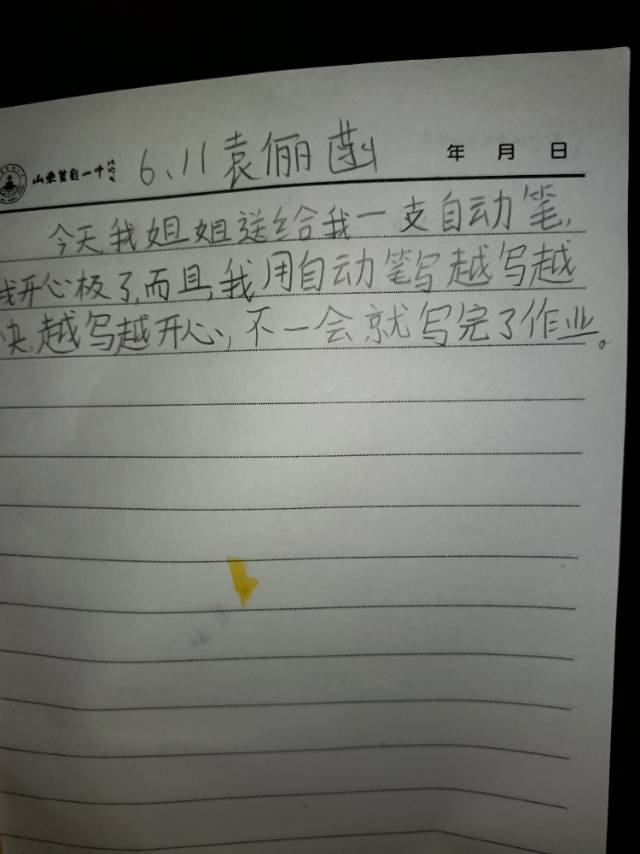 山东莒县一中 6.11 袁俪菡 年 月 日
今天,我姐姐送给我一支自动笔,
我开心极了,而且,我用自动笔写越写越
快,越写越开心,不一会就写完了作业。